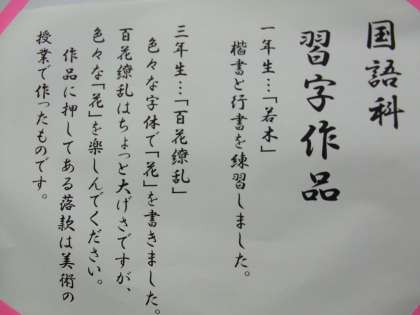 国語科
習字作品
一年生…「若木」
楷書と行書を練習しました。
三年生…「百花繚乱」
色々な字体で「花」を書きました。
百花繚乱はちょっと大げさですが、
色々な「花」を楽しんでください。
作品に押してある落款は美術の
授業で作ったものです。